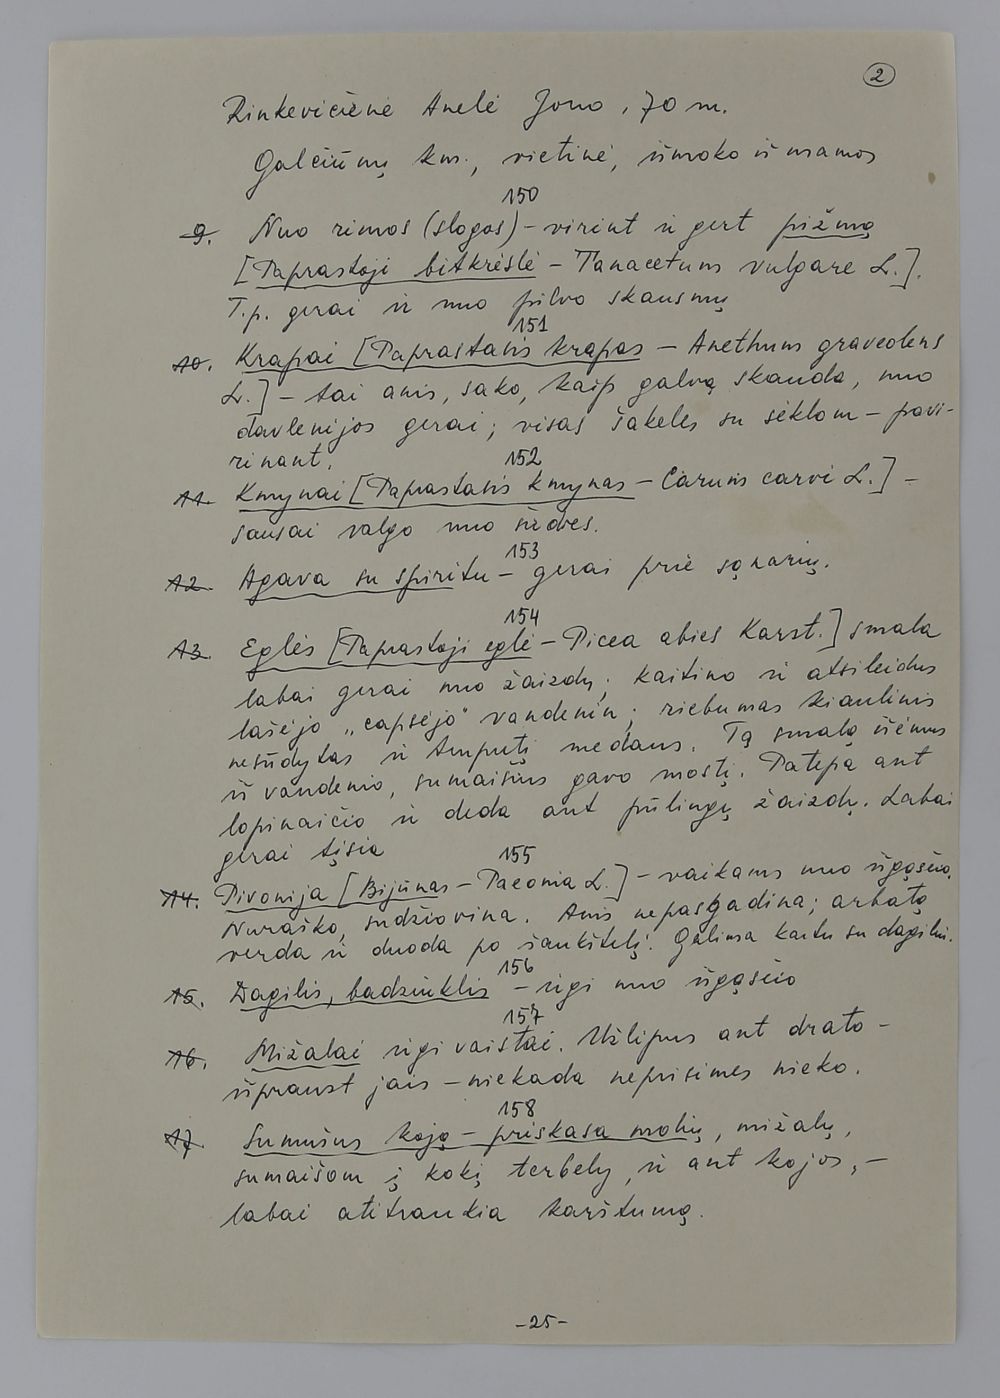 2
Rinkevičienė Anelė Jono, 70 m.
Galčiūnų km., vietinė, išmoko iš mamos
150
9. Nuo rimos (slogos) – virint ir gert pižmą
[Paprastoji bitkrėslė – Tanacetum vulgare L.].
T.p. gerai ir nuo pilvo skausmų
151
10. Krapai [Paprastasis krapas – Anethum graveolens
L.] – tai anis, sako, kaip galvą skauda, nuo
davlenijos gerai; visas šakeles su sėklom – pavi-
rinant.
152
11. Kmynai [Paprastasis kmynas – Carum carvi L.] –
sausai valgo nuo širdies.
153
12. Agava su spiritu – gerai prie sąnarių.
154
13. Eglės [Paprastoji eglė – Picea abies Karst.] smala
labai gerai nuo žaizdų; kaitino ir atsileidus
lašėjo „capsėjo" vandenin; riebumas kiaulinis
nesūdytas ir truputį medaus. Tą smalą išėmus
iš vandenio, sumaišius gavo mostį. Patepa ant
lopinaičio ir deda ant pūlingų žaizdų. Labai
gerai tįsia
155
14. Pivonija [Bijūnas – Paeonia L.] – vaikams nuo išgąsčio.
Nuraško, sudžiovina. Anis nepasgadina; arbatą
verda ir duoda po šaukštelį. Galima kartu su dagiliu.
156
15. Dagilis, badžiuklis – irgi nuo išgąsčio
157
16. Mižalai irgi vaistai. Užlipus ant drato –
išpraust jais – niekada neprisimes nieko.
158
17. Sumušus koją – priskasa molių, mižalų,
sumaišom į kokį terbely, ir ant kojos, –
labai atitraukia karštumą.
-25-